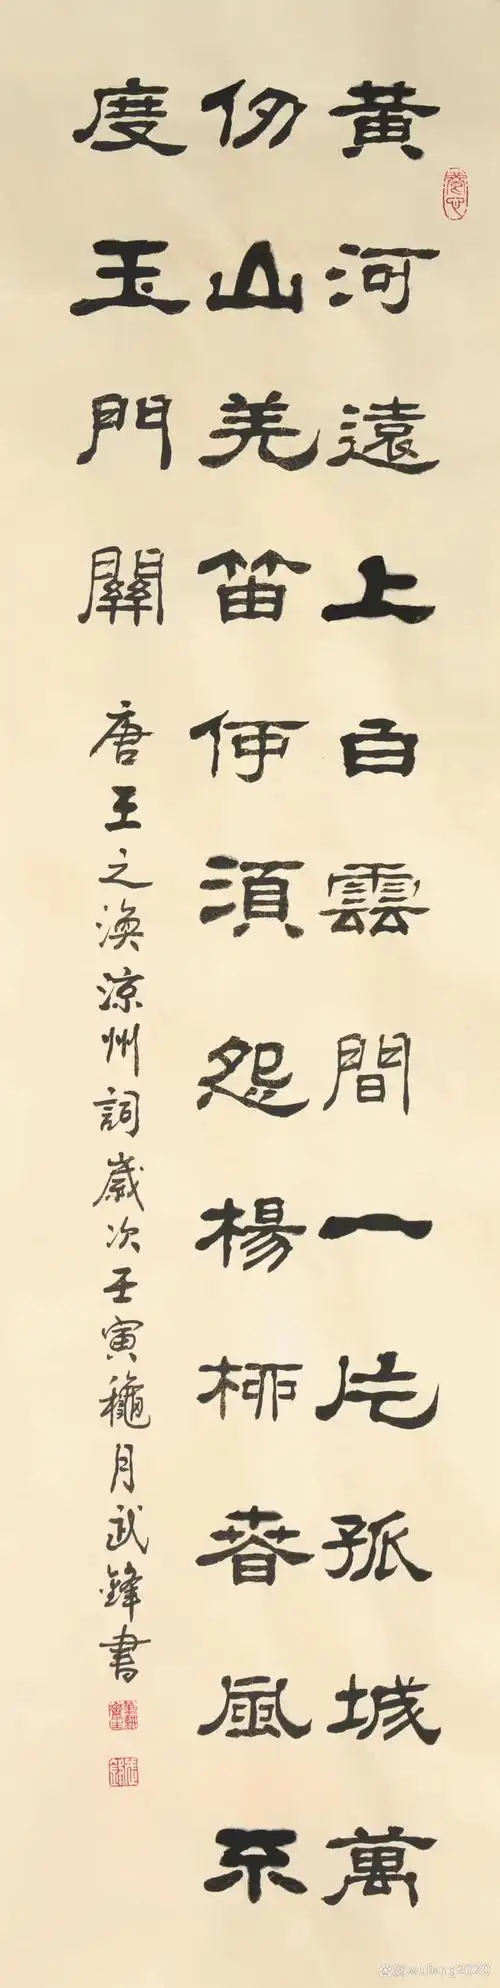 黃河遠上白雲間一片孤城萬
仞山羌笛何須怨楊柳春風不
度玉門關
唐王之渙涼州詞歲次壬寅龝月武鋒書
wufeng2020